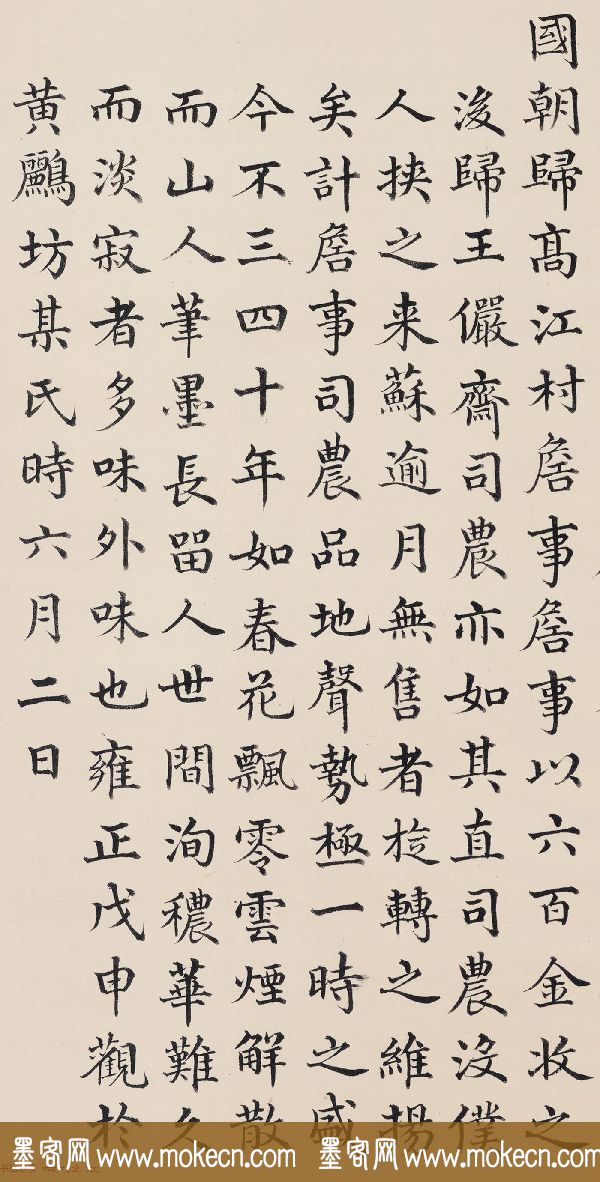 國朝歸髙江村詹事詹事以六百金收之
後歸王儼齋司農亦如其直司農没僕
人挾之来蘇逾月無售者旋轉之維揚
矣計詹事司農品地聲勢極一時之盛
今不三四十年如春花飄零雲煙解散
而山人筆墨長留人世間洵穠華難久
而淡寂者多味外味也雍正戊申觀於
黄鸝坊某氏時六月二日
墨客网www.mokecn.com 墨客网www.mokecn.com